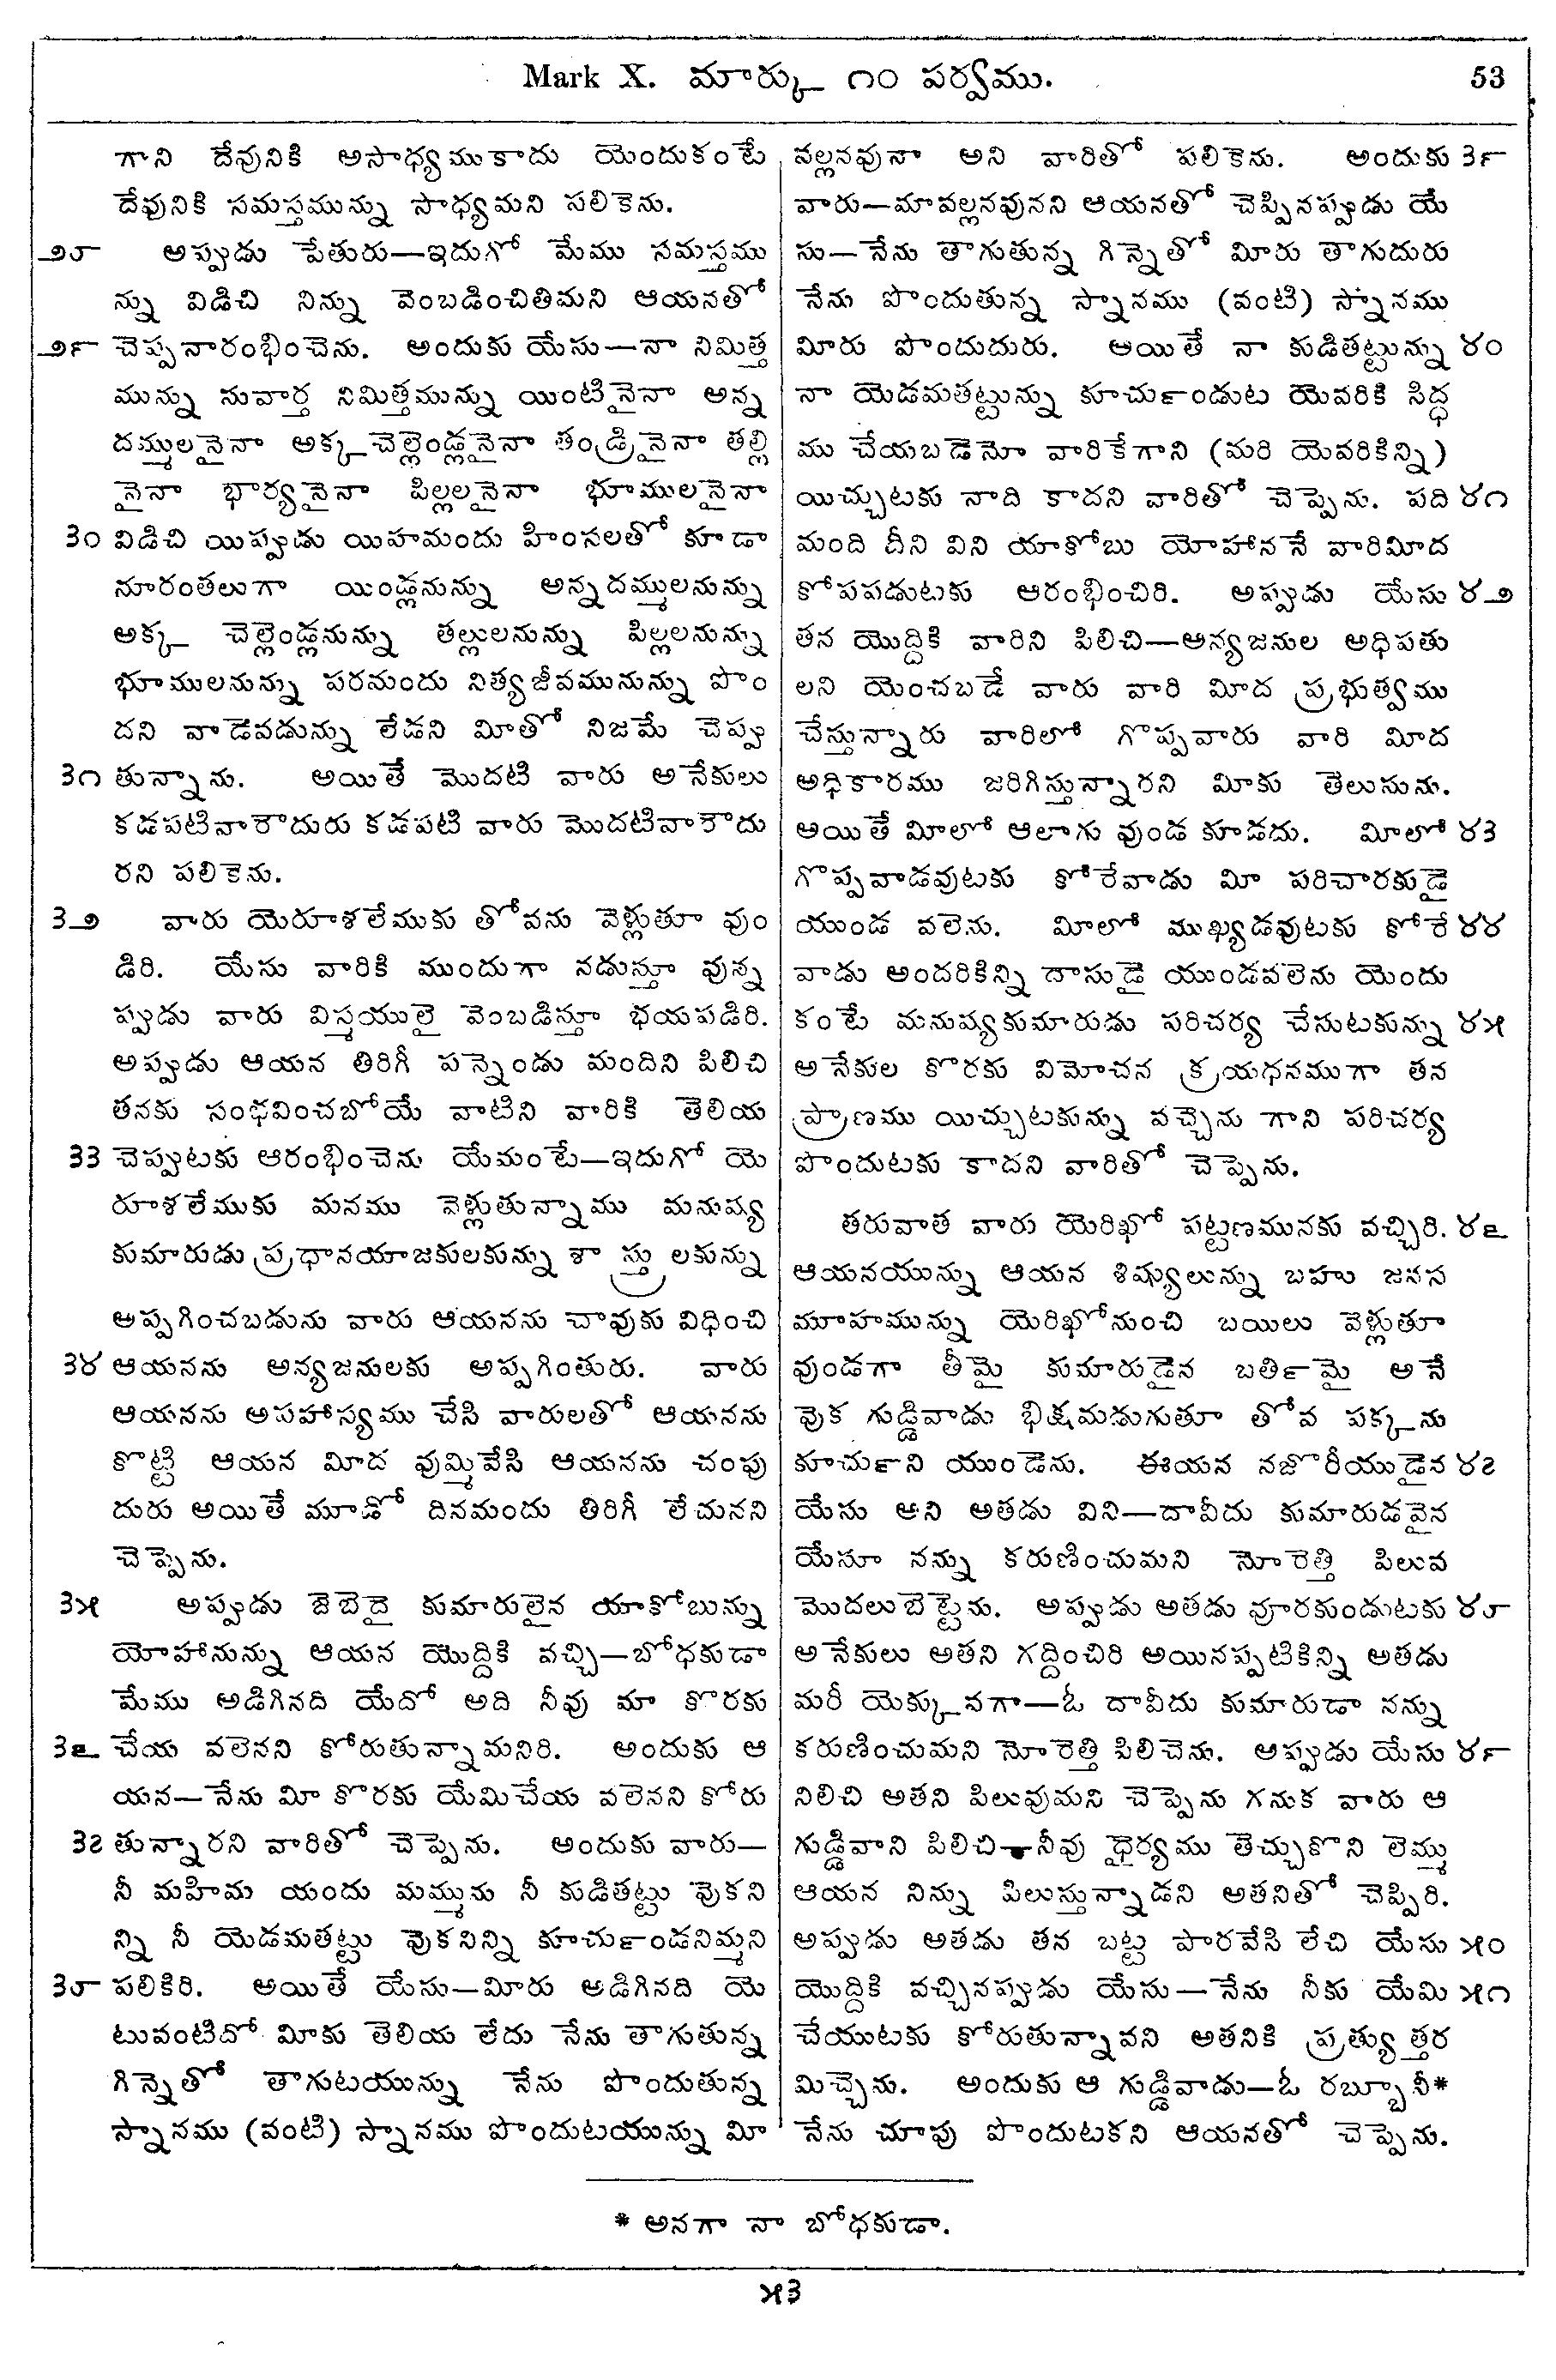 Mark X. మార్కు ౧౦ పర్వము. 53
గాని దేవునికి అసాధ్యముకాదు యెందుకంటే
దేవునికి సమస్తమున్ను సాధ్యమని పలికెను.
౨౮ అప్పుడు పేతురు—ఇదుగో మేము సమస్తము
న్ను విడిచి నిన్ను వెంబడించితిమని ఆయనతో
౨౯ చెప్పనారంభించెను. అందుకు యేసు—నా నిమిత్త
మున్ను సువార్త నిమిత్తమున్ను యింటినైనా అన్న
దమ్ములనైనా అక్క చెల్లెండ్లనైనా తండ్రినైనా తల్లి
నైనా భార్యనైనా పిల్లలనైనా భూములనైనా
౩౦ విడిచి యిప్పుడు యిహమందు హింసలతో కూడా
నూరంతలుగా యిండ్లనున్ను అన్నదమ్ములనున్ను
అక్క చెల్లెండ్లనున్ను తల్లులనున్ను పిల్లలనున్ను
భూములనున్ను పరమందు నిత్యజీవమునున్ను పొం
దని వాడెవడున్ను లేడని మీతో నిజమే చెప్పు
౩౧ తున్నాను. అయితే మొదటి వారు అనేకులు
కడపటివారౌదురు కడపటి వారు మొదటివారౌదు
రని పలికెను.
౩౨ వారు యెరూశలేముకు తోవను వెళ్లుతూ వుం
డిరి. యేసు వారికి ముందుగా నడుస్తూ వున్న
ప్పుడు వారు విస్మయులై వెంబడిస్తూ భయపడిరి.
అప్పుడు ఆయన తిరిగీ పన్నెండు మందిని పిలిచి
తనకు సంభవించబోయే వాటిని వారికి తెలియ
౩౩ చెప్పుటకు ఆరంభించెను యేమంటే—ఇదుగో యె
రూశలేముకు మనము వెళ్లుతున్నాము మనుష్య
కుమారుడు ప్రధానయాజకులకున్ను శాస్త్రులకున్ను
అప్పగించబడును వారు ఆయనను చావుకు విధించి
౩౪ ఆయనను అన్యజనులకు అప్పగింతురు. వారు
ఆయనను అపహాస్యము చేసి వారులతో ఆయనను
కొట్టి ఆయన మీద వుమ్మివేసి ఆయనను చంపు
దురు అయితే మూడో దినమందు తిరిగీ లేచునని
చెప్పెను.
౩౫ అప్పుడు జెబెదై కుమారులైన యాకోబున్ను
యోహానున్ను ఆయన యొద్దికి వచ్చి—బోధకుడా
మేము అడిగినది యేదో అది నీవు మా కొరకు
౩౬ చేయ వలెనని కోరుతున్నామనిరి. అందుకు ఆ
యన—నేను మీ కొరకు యేమిచేయ వలెనని కోరు
౩౭ తున్నారని వారితో చెప్పెను. అందుకు వారు—
నీ మహిమ యందు మమ్మును నీ కుడితట్టు వొకని
న్ని నీ యెడమతట్టు వొకనిన్ని కూచుఁండనిమ్మని
౩౮ పలికిరి. అయితే యేసు—మీరు అడిగినది యె
టువంటిదో మీకు తెలియ లేదు నేను తాగుతున్న
గిన్నెతో తాగుటయున్ను నేను పొందుతున్న
స్నానము (వంటి) స్నానము పొందుటయున్ను మీ
వల్లనవునా అని వారితో పలికెను. అందుకు ౩౯
వారు—మావల్లనవునని ఆయనతో చెప్పినప్పుడు యే
సు—నేను తాగుతున్న గిన్నెతో మీరు తాగుదురు
నేను పొందుతున్న స్నానము (వంటి) స్నానము
మీరు పొందుదురు. అయితే నా కుడితట్టున్ను ౪౦
నా యెడమతట్టున్ను కూచుఁండుట యెవరికి సిద్ధ
ము చేయబడెనో వారికేగాని (మరి యెవరికిన్ని)
యిచ్చుటకు నాది కాదని వారితో చెప్పెను. పది ౪౧
మంది దీని విని యాకోబు యోహాననే వారిమీద
కోపపడుటకు ఆరంభించిరి. అప్పుడు యేసు ౪౨
తన యొద్దికి వారిని పిలిచి—అన్యజనుల అధిపతు
లని యెంచబడే వారు వారి మీద ప్రభుత్వము
చేస్తున్నారు వారిలో గొప్పవారు వారి మీద
అధికారము జరిగిస్తున్నారని మీకు తెలుసును.
అయితే మీలో ఆలాగు వుండ కూడదు. మీలో ౪౩
గొప్పవాడవుటకు కోరేవాడు మీ పరిచారకుడై
యుండ వలెను. మీలో ముఖ్యడవుటకు కోరే ౪౪
వాడు అందరికిన్ని దాసుడై యుండవలెను యెందు
కంటే మనుష్యకుమారుడు పరిచర్య చేసుటకున్ను ౪౫
అనేకుల కొరకు విమోచన క్రయధనముగా తన
ప్రాణము యిచ్చుటకున్ను వచ్చెను గాని పరిచర్య
పొందుటకు కాదని వారితో చెప్పెను.
తరువాత వారు యెరిఖో పట్టణమునకు వచ్చిరి. ౪౬
ఆయనయున్ను ఆయన శిష్యులున్ను బహు జనస
మూహమున్ను యెరిఖోనుంచి బయిలు వెళ్లుతూ
వుండగా తీమై కుమారుడైన బతిఁమై అనే
వొక గుడ్డివాడు భిక్షమడుగుతూ తోవ పక్కను
కూచుఁని యుండెను. ఈయన నజొరీయుడైన ౪౭
యేసు అని అతడు విని—దావీదు కుమారుడవైన
యేసూ నన్ను కరుణించుమని నోరెత్తి పిలువ
మొదలుబెట్టెను. అప్పుడు అతడు వూరకుండుటకు ౪౮
అనేకులు అతని గద్దించిరి అయినప్పటికిన్ని అతడు
మరీ యెక్కువగా—ఓ దావీదు కుమారుడా నన్ను
కరుణించుమని నోరెత్తి పిలిచెను. అప్పుడు యేసు ౪౯
నిలిచి అతని పిలువుమని చెప్పెను గనుక వారు ఆ
గుడ్డివాని పిలిచి—నీవు ధైర్యము తెచ్చుకొని లెమ్ము
ఆయన నిన్ను పిలుస్తున్నాడని అతనితో చెప్పిరి.
అప్పుడు అతడు తన బట్ట పారవేసి లేచి యేసు ౫౦
యొద్దికి వచ్చినప్పుడు యేసు—నేను నీకు యేమి ౫౧
చేయుటకు కోరుతున్నావని అతనికి ప్రత్యుత్తర
మిచ్చెను. అందుకు ఆ గుడ్డివాడు—ఓ రబ్బూనీ*
నేను చూపు పొందుటకని ఆయనతో చెప్పెను.
* అనగా నా బోధకుడా.
౫౩